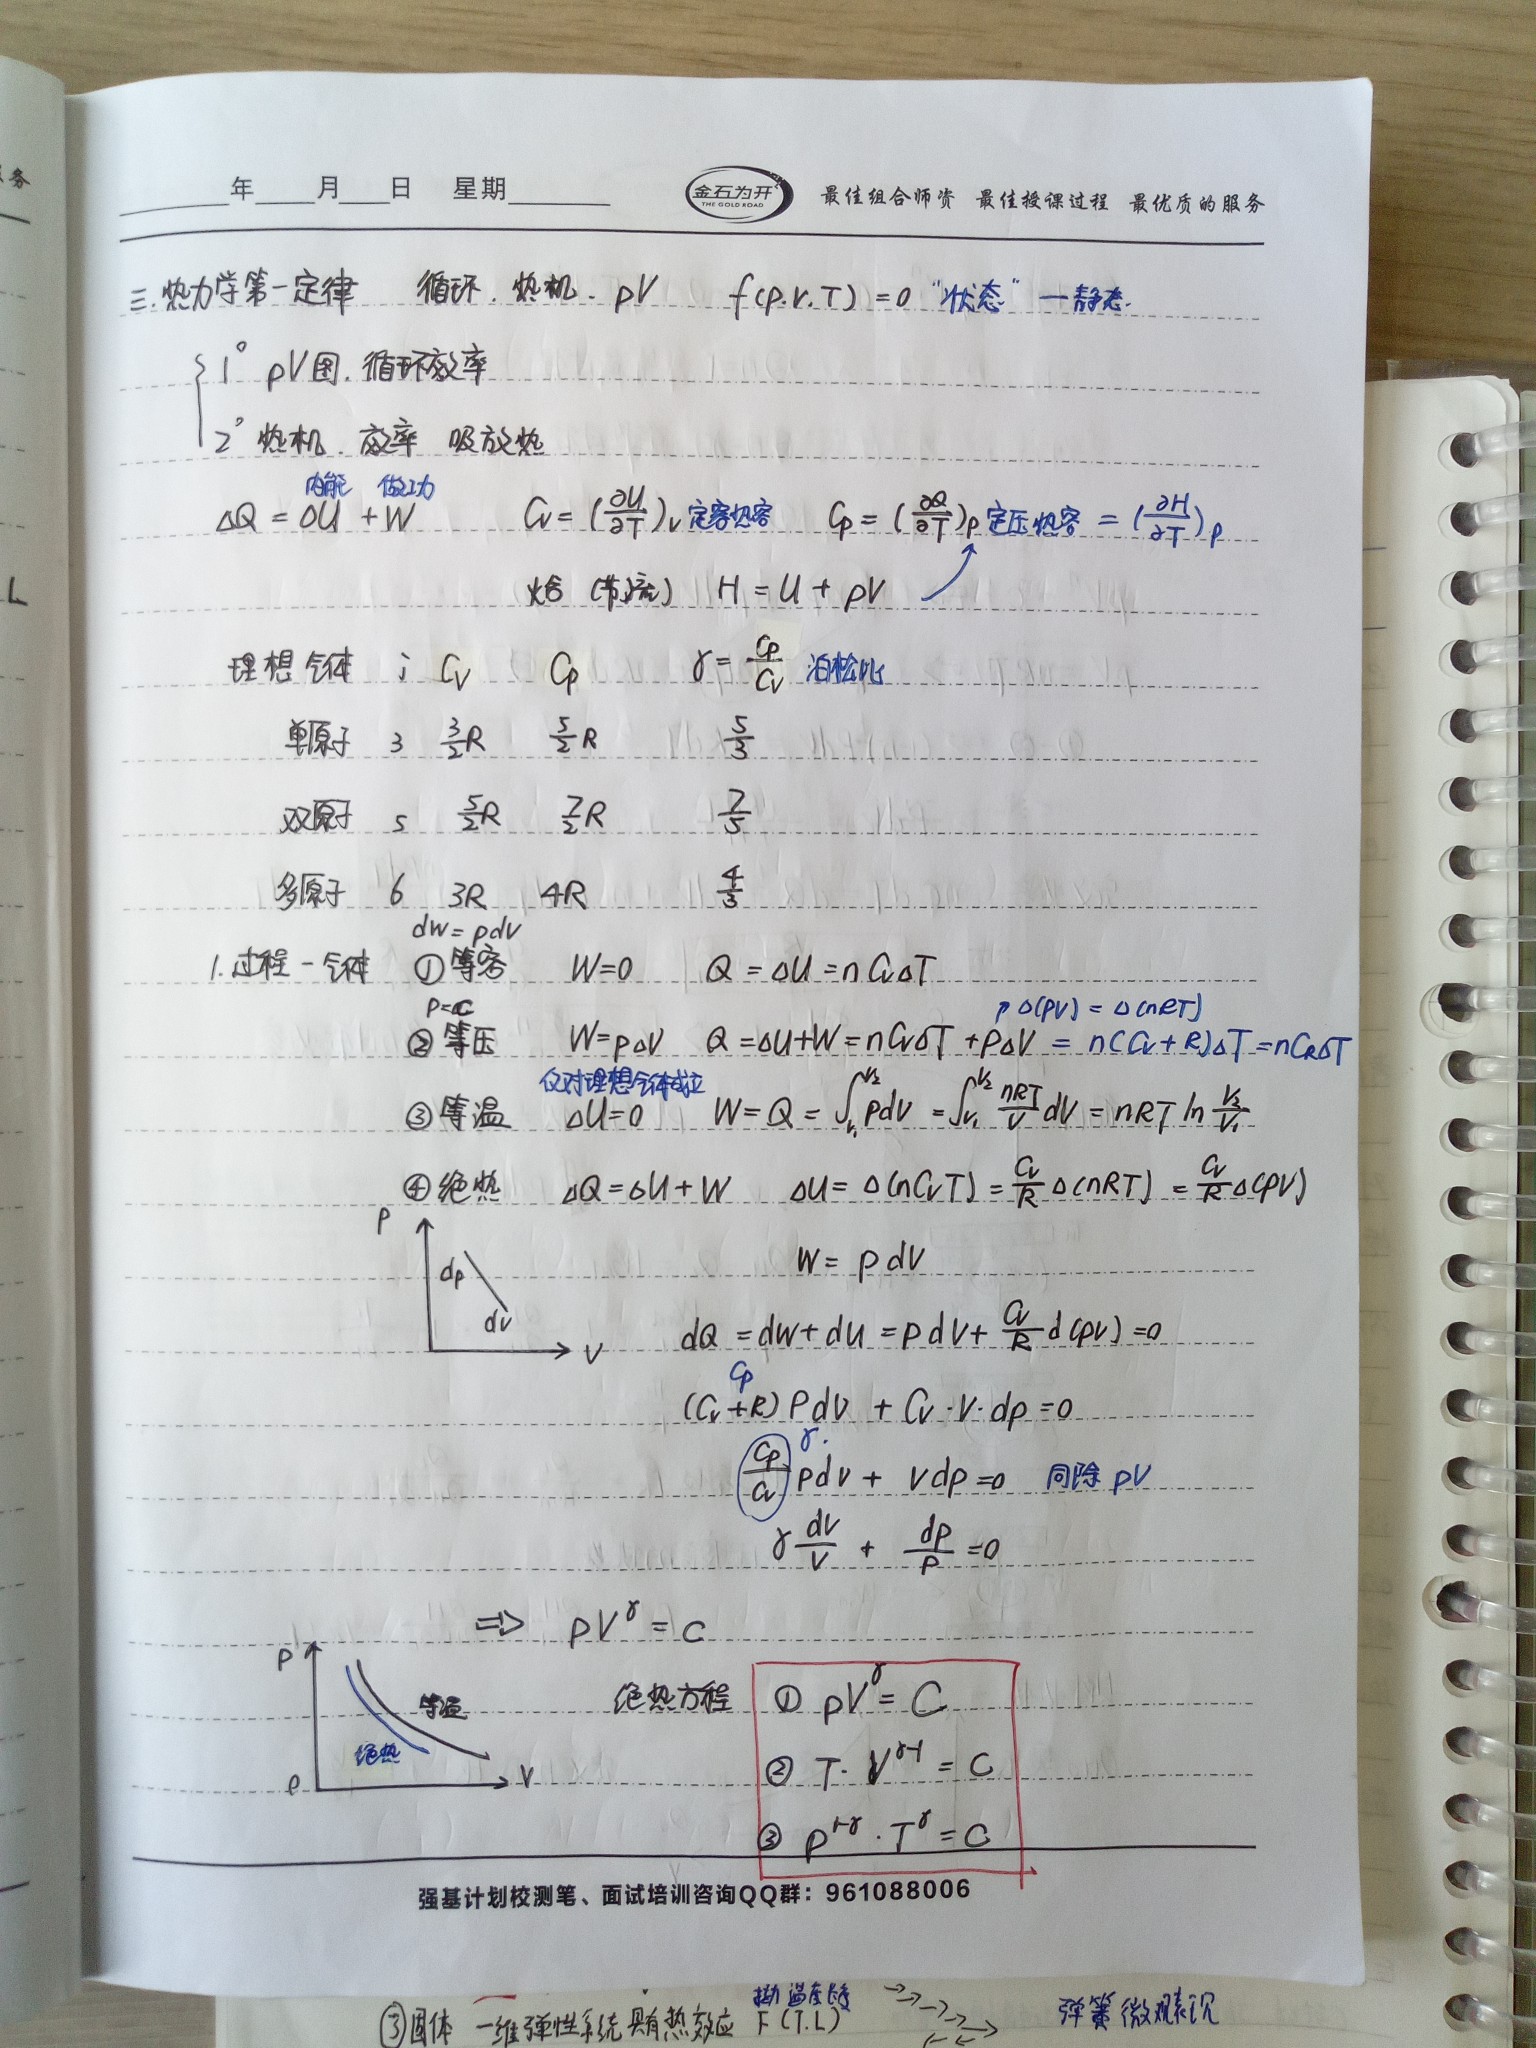 服务
年 月 日 星期 金石为开 THE GOLD ROAD 最佳组合师资 最佳授课过程 最优质的服务
三.热力学第一定律 循环.热机.pV f(p.V.T)=0 "状态"—静态.
1° pV图.循环效率
2° 热机.效率 吸放热
内能 做功
ΔQ=ΔU+W Cv=(∂U/∂T)v 定容热容 Cp=(∂Q/∂T)p 定压热容=(∂H/∂T)p
焓 H=U+pV
理想气体 i Cv Cp γ=Cp/Cv 泊松比
单原子 3 3/2R 5/2R 5/3
双原子 5 5/2R 7/2R 7/5
多原子 6 3R 4R 4/3
dW=pdV
1.过程—气体 ①等容 W=0 Q=ΔU=nCvΔT
P=C Δ(pV)=Δ(nRT)
②等压 W=pΔV Q=ΔU+W=nCvΔT+PΔV=n(Cv+R)ΔT=nCpΔT
仅对理想气体成立
③等温 ΔU=0 W=Q=∫V₁V₂pdV=∫V₁V₂nRT/VdV=nRT ln V₂/V₁
④绝热 ΔQ=ΔU+W ΔU=Δ(nCvT)=Cv/RΔ(nRT)=Cv/RΔ(pV)
P
dp
dV
V
W=pdV
dQ=dW+dU=pdV+Cv/Rd(pV)=0
Cp
(Cv+R)PdV+Cv·V·dp=0
γ.
Cp/Cv pdV+Vdp=0 同除pV
γdV/V+dp/P=0
=> pV^γ=C
P
等温
绝热
V
绝热方程 ①pV^γ=C
②T·V^γ-1=C
③p^1-γ·T^γ=C
强基计划校测笔、面试培训咨询QQ群：961088006
③固体 一维弹性系统具有热效应 F(T.L) 弹簧微观